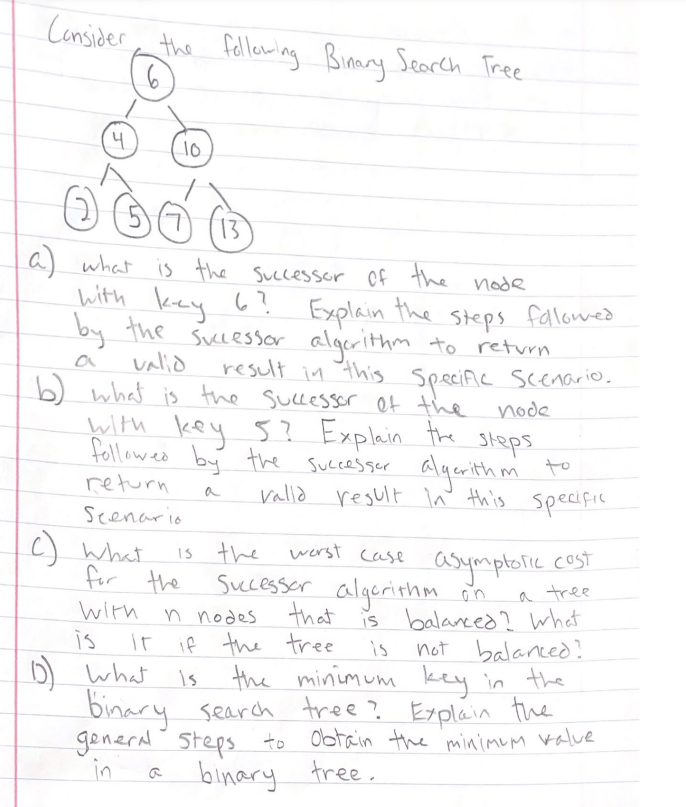 Consider the following Binary Search Tree
6
4 10
2 5 7 13
a) what is the successor of the node
with key 6? Explain the steps followed
by the sucessor algorithm to return
a valid result in this specific scenario.
b) what is the successor of the node
with key 5? Explain the steps
followed by the successor algorithm to
return a valid result in this specific
scenario
c) What is the worst case asymptotic cost
for the successor algorithm on a tree
with n nodes that is balanced? What
is it if the tree is not balanced?
D) What is the minimum key in the
binary search tree? Explain the
general steps to obtain the minimum value
in a binary tree.